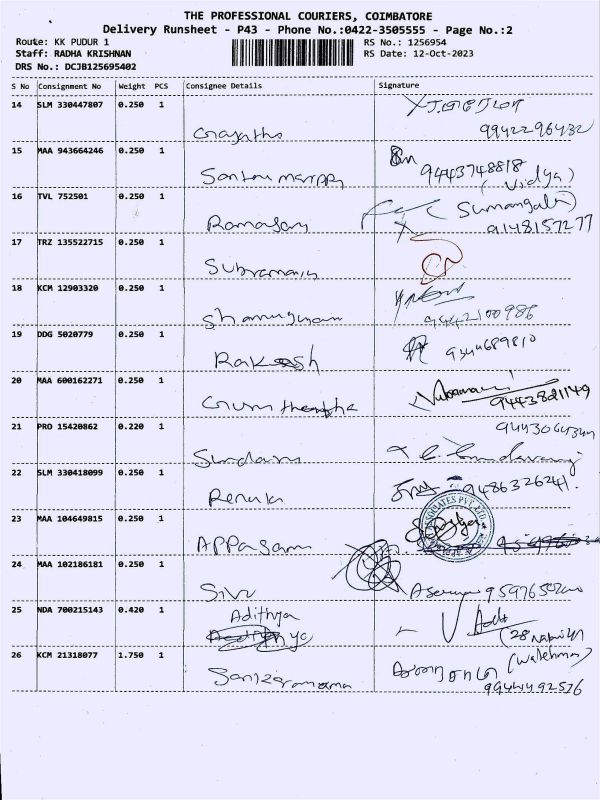 THE PROFESSIONAL COURIERS, COIMBATORE
Delivery Runsheet - P43 - Phone No.:0422-3505555 - Page No.:2
Route: KK PUDUR 1 RS No.: 1256954
Staff: RADHA KRISHNAN RS Date: 12-Oct-2023
DRS No.: DCJB125695402
S No Consignment No Weight PCS Consignee Details Signature
14 SLM 330447807 0.250 1
Gayathri 9942296432
15 MAA 943664246 0.250 1
9443748818
(Vidya)
16 TVL 752501 0.250 1 (Sumangala)
Ramasamy 9148157277
17 TRZ 135522715 0.250 1
Subramani
18 KCM 12903320 0.250 1
Shanmugam 9442100986
19 DDG 5020779 0.250 1
Rakesh 9344689810
20 MAA 600162271 0.250 1
9443821149
21 PRO 15420862 0.220 1
22 SLM 330418099 0.250 1
Renuka 9486326241
23 MAA 104649815 0.250 1
Appasami
24 MAA 102186181 0.250 1
Siva
25 NDA 700215143 0.420 1 Adithya
26 KCM 21318077 1.750 1 (Watchman)
9944492576